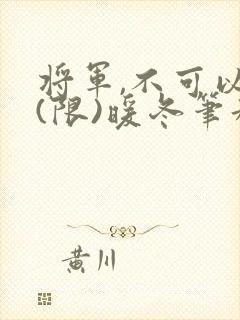 将軍,不可以
(限)暖冬筆
黄川